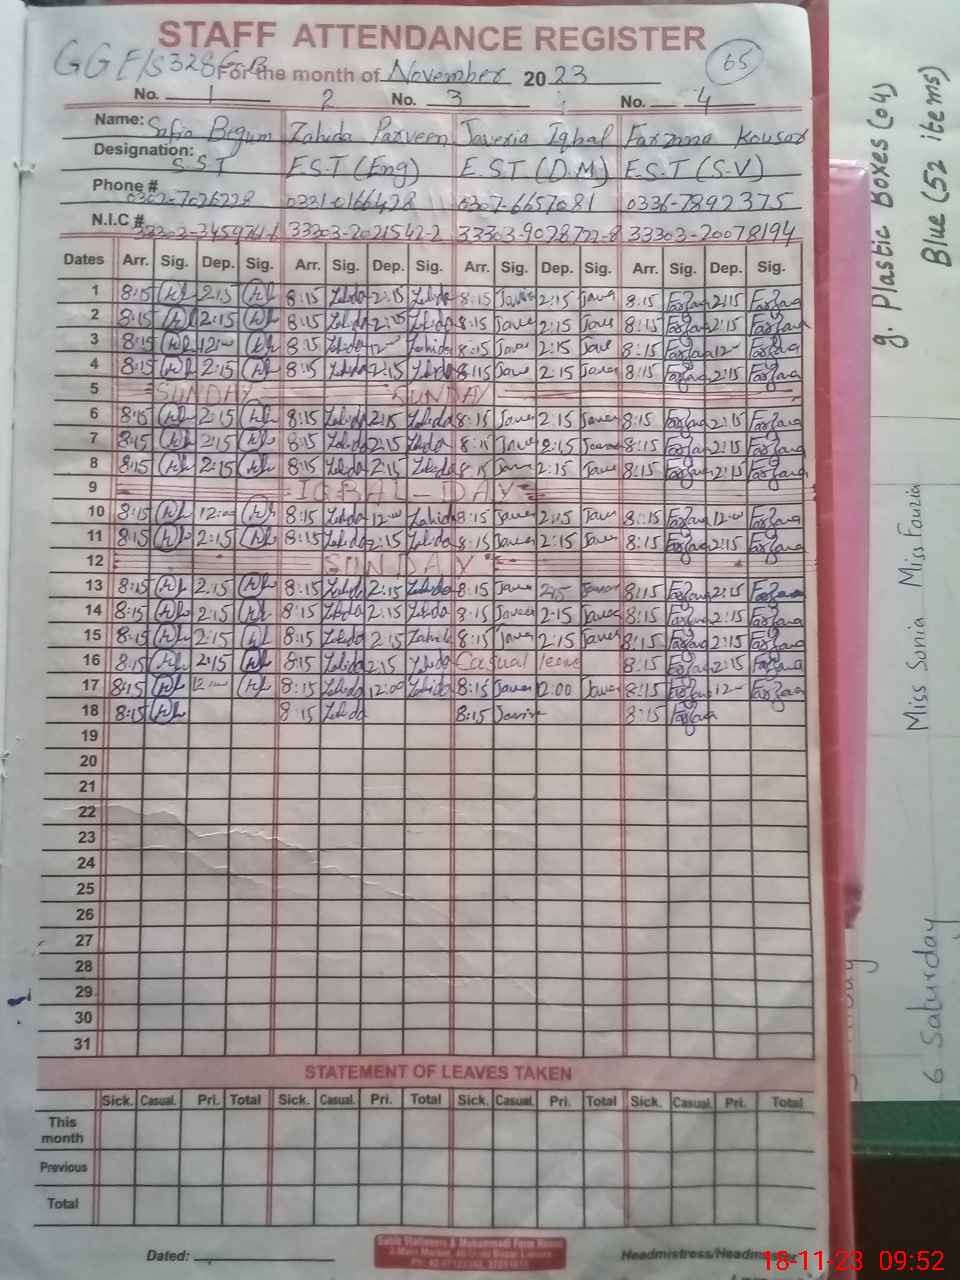 STAFF ATTENDANCE REGISTER
For the month of November 2023
65
No. 1 2 No. 3 No. 4
Name: Safia Begum Zahida Parveen Javeria Iqbal Farzana Kousar
Designation: S.S.T E.S.T (Eng) E.S.T (D.M) E.S.T (S.V)
Phone # 0331-0166428 0307-6657081 0336-7892375
N.I.C # 33303-2021542-2 33303-9028722-8 33303-20078194
Dates Arr. Sig. Dep. Sig. Arr. Sig. Dep. Sig. Arr. Sig. Dep. Sig. Arr. Sig. Dep. Sig.
1 8:15 2:15 8:15 Zahida 2:15 Zahida 8:15 Jave 2:15 Jave 8:15 Farzana 2:15 Farzana
2 8:15 2:15 8:15 Zahida 2:15 Zahida 8:15 Jave 2:15 Jave 8:15 Farzana 2:15 Farzana
3 8:15 12:00 8:15 Zahida 12:00 Zahida 8:15 Jave 2:15 Jave 8:15 Farzana 12:00 Farzana
4 8:15 2:15 8:15 Zahida 2:15 Zahida 8:15 Jave 2:15 Jave 8:15 Farzana 2:15 Farzana
5 SUNDAY SUNDAY
6 8:15 2:15 8:15 Zahida 2:15 Zahida 8:15 Jave 2:15 Jave 8:15 Farzana 2:15 Farzana
7 8:15 2:15 8:15 Zahida 2:15 Zahida 8:15 Jave 2:15 Jave 8:15 Farzana 2:15 Farzana
8 8:15 2:15 8:15 Zahida 2:15 Zahida 8:15 Jave 2:15 Jave 8:15 Farzana 2:15 Farzana
9 IQBAL-DAY
10 8:15 12:00 8:15 Zahida 12:00 Zahida 8:15 Jave 2:15 Jave 8:15 Farzana 12:00 Farzana
11 8:15 2:15 8:15 Zahida 2:15 Zahida 8:15 Jave 2:15 Jave 8:15 Farzana 2:15 Farzana
12 SUNDAY
13 8:15 2:15 8:15 Zahida 2:15 Zahida 8:15 Jave 2:15 8:15 Farzana 2:15 Farzana
14 8:15 2:15 8:15 Zahida 2:15 Zahida 8:15 Jave 2:15 Jave 8:15 Farzana 2:15 Farzana
15 8:15 2:15 8:15 Zahida 2:15 Zahida 8:15 Jave 2:15 Jave 8:15 Farzana 2:15 Farzana
16 8:15 2:15 8:15 Zahida 2:15 Zahida Casual leave 8:15 Farzana 2:15 Farzana
17 8:15 12:00 8:15 Zahida 12:00 Zahida 8:15 Jave 12:00 Jave 8:15 Farzana 12:00 Farzana
18 8:15 8:15 Zahida 8:15 8:15 Farzana
19
20
21
22
23
24
25
26
27
28
29
30
31
STATEMENT OF LEAVES TAKEN
Sick. Casual. Pri. Total Sick. Casual. Pri. Total Sick. Casual. Pri. Total Sick. Casual. Pri. Total
This month
Previous
Total
Dated: Headmistress/Headmaster
Sabir Stationers & Muhammadi Form House
g. Plastic Boxes (04)
Blue (52 items)
Miss Sonia Miss Fouzia
6 Saturday
18-11-23 09:52